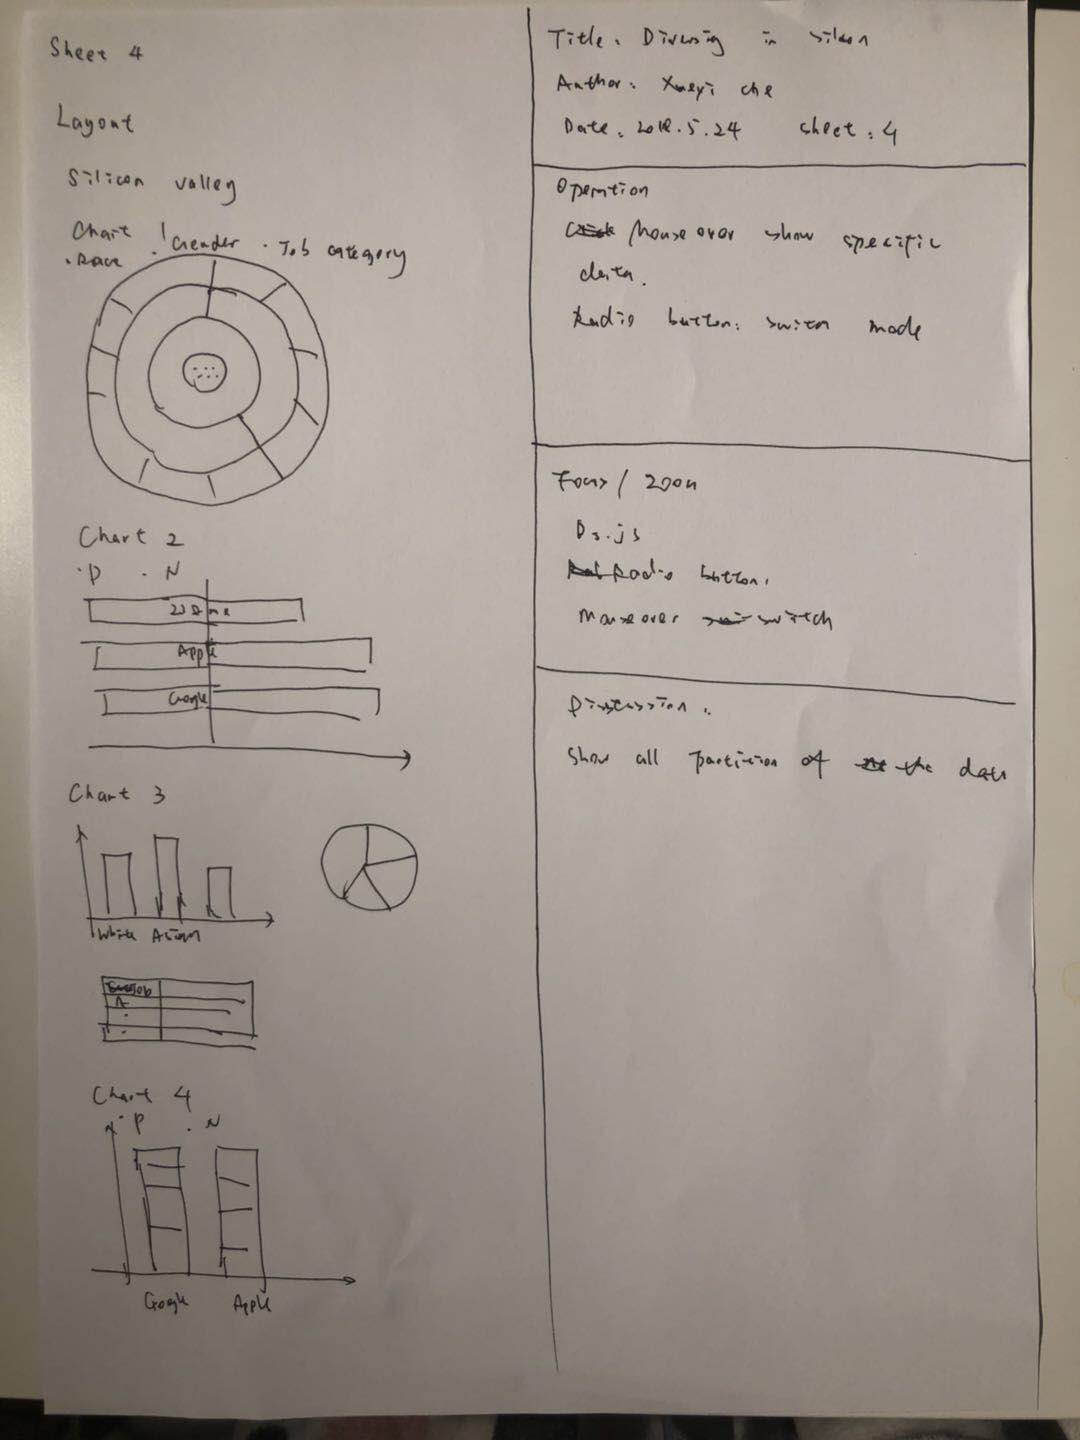 Sheet 4
Layout
Silicon valley
Chart 1
. Race . Gender . Job category
Chart 2
. P . N
Apple
Google
Chart 3
White Asian
Job
A
Chart 4
. P . N
Google Apple
Title: Diversity in silicon
Author: Xueyi che
Date: 2018.5.24 sheet: 4
Operation
Mouse over show specific
data.
Radio button: switch mode
Focus / zoom
D3.js
Radio button.
Mouseover switch
Discussion:
Show all partition of the data